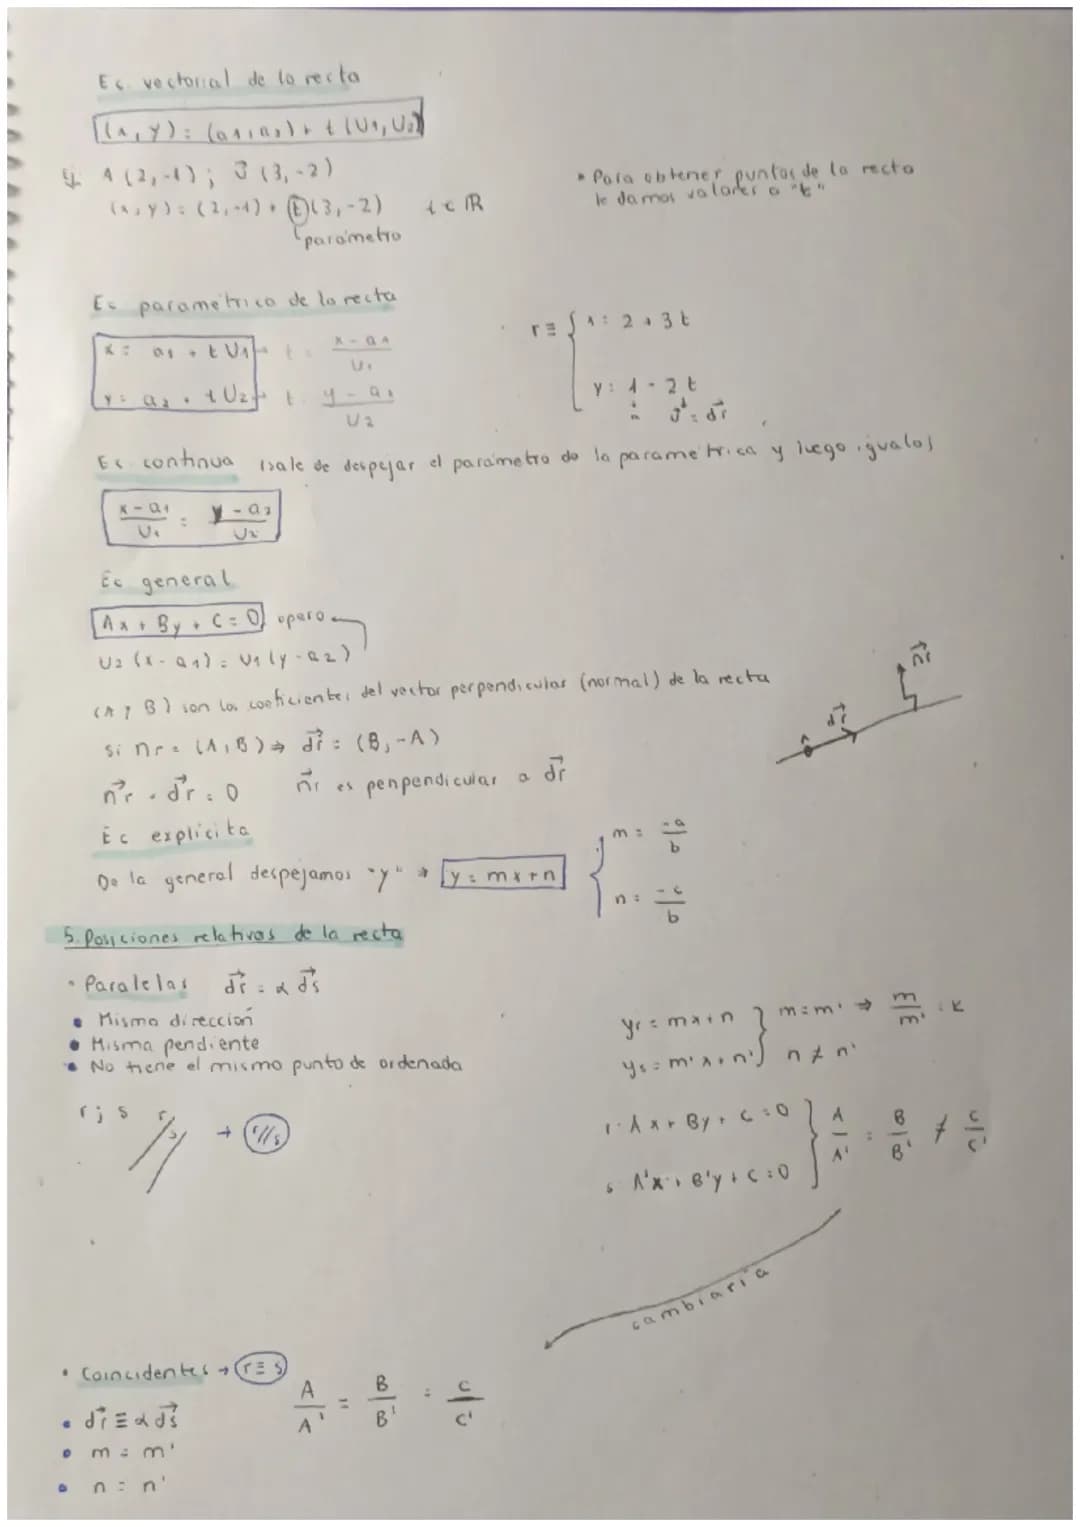 Ec. vectorial de la recta
(x, y) = (a1, a2) + t (U1, U2)
Ej. A (2, -1) ; J (3, -2)
• Para obtener puntos de la recta
le damos valores a "t"
(x, y) = (2, -1) + t (3, -2) t ∈ ℝ
parámetro
Ec paramétrica de la recta
x = a1 + t U1 → t = x - a1 / U1
y = a2 + t U2 → t = y - a2 / U2
r ≡ { x = 2 + 3t
y = 1 - 2t
n J = dr
Ec. continua (sale de despejar el parámetro de la paramétrica y luego igualo)
x - a1 / U1 = y - a2 / U2
Ec general
Ax + By + C = 0 opero
U2 (x - a1) = U1 (y - a2)
(A, B) son los coeficientes del vector perpendicular (normal) de la recta
Si nr = (A, B) ⇒ dr = (B, -A)
nr · dr = 0 nr es penpendicular a dr
A dr nr
Ec explícita
De la general despejamos "y" → y = mx + n
m = -a / b
n = -c / b
5. Posiciones relativas de la recta
• Paralelas dr = α ds
• Misma dirección
• Misma pendiente
• No tiene el mismo punto de ordenada
r; s r s → r//s
yr = mx + n } m = m' ⇒ m / m' = K
ys = m'x + n' } n ≠ n'
r: Ax + By + C = 0 } A / A' = B / B' ≠ C / C'
s: A'x + B'y + C = 0
cambiaría
• Coincidentes → r ≡ s
A / A' = B / B' = C / C'
• dr ≡ α ds
• m = m'
• n = n'